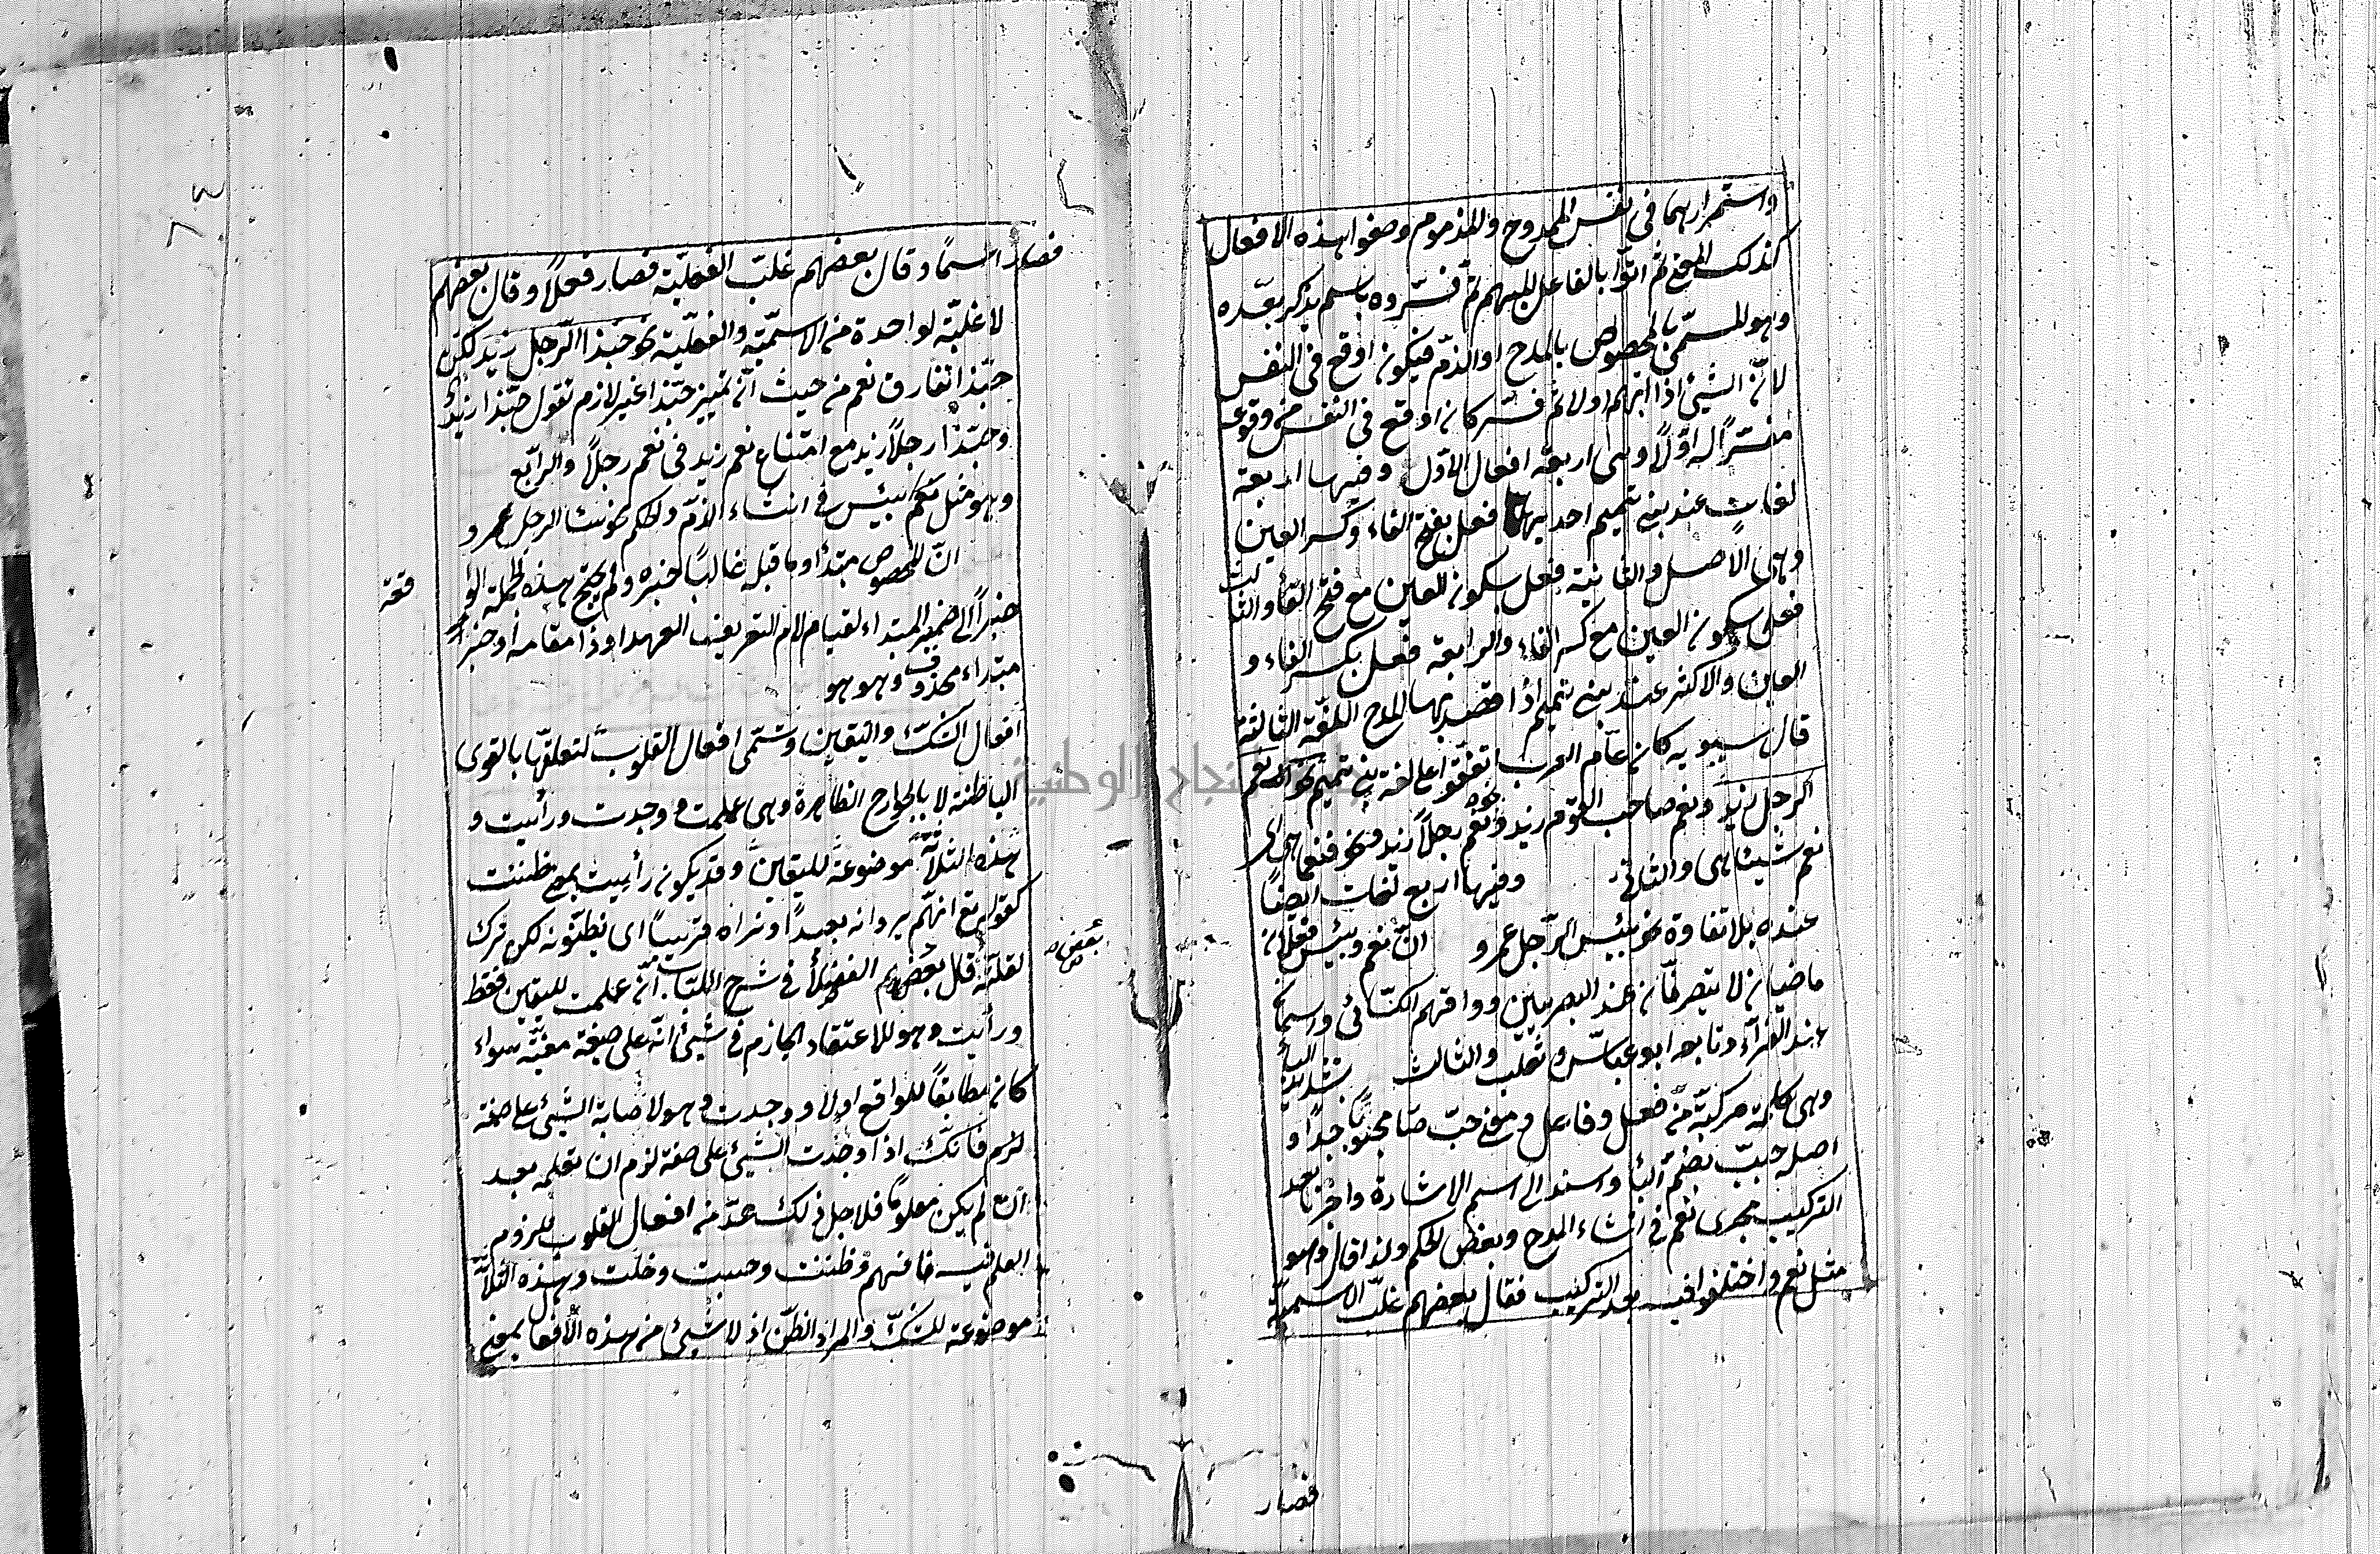 واستمرارهما في نفس الممدوح والمذموم وصفوا هذه الافعال
لذلك المعنى ثم اتوا بالفاعل المبهم ثم فسروه باسم يذكر بعده
وهو المسمى بالمخصوص بالمدح او الذم فيكون اوقع في النفس
لان الشيئ اذا ابهم اولا ثم فسر كان اوقع في النفس من وقوعه
مفسرا له اولا وهى اربعة افعال الاول وفيها اربعة
لغات عند بنى تميم احديها فعل بفتح الفاء وكسر العين
وهى الاصل والثانية فعل بسكون العين مع فتح الفاء والثالث
فعل بسكون العين مع كسر الفاء والرابعة فعل بكسر الفاء و
العين والاكثر عند بنى تميم اذا قصد بها المدح اللغة الثالثة
قال سيبويه كان عام العرب اتفقوا على لغة بنى تميم نحو نعم
الرجل زيد ونعم صاحب القوم زيد ونعم رجلا زيد ونحو فنعما هى اى
نعم شيئا هى والثانى وفيها اربع لغات ايضا
عنده بلا تفاوة نحو بئس الرجل عمرو ان نعم وبئس فعلان
ماضيان لا يتصرفان عند البصريين ووافقهم الكسائى واسمان
عند الفراء وتابعه ابو عباس ثعلب والثالث بتشديد الباء
وهى كلمة مركبة من فعل وفاعل ومعنى حب صار محبوبا جدا و
اصله حبب بضم الباء وسند الى اسم الاشارة واجريا بعد
التركيب مجرى نعم في انشاء المدح وبعض الحكم ولذا قال وهو
مثل نعم واختلفوا فيه بعد التركيب فقال بعضهم غلب الاسمية
فصار
فصار اسما وقال بعضهم غلب الفعلية فصار فعلا وقال بعضهم
لا غلبة لواحدة من الاسمية والفعلية نحو حبذا الرجل زيد لكن
حبذا تفارق نعم من حيث ان تمييز حبذا غير لازم تقول حبذا زيد
وحبذا رجلا زيد مع امتناع نعم زيد في نعم رجلا والرابع
وهو مثل بئس في انشاء الذم والحكم نحو ساء الرجل عمرو
ان المخصوص مبتدأ وما قبله غالبا خبره ولم يحتج هذه الجملة
خبرا الى ضمير المبتداء لقيام لام التعريف العهد او ذا مقامه او خبر
مبتداء محذوف وهو هو
افعال الشك واليقين وتسمى افعال القلوب لتعلقها بالقوى
الباطنة لا بالجوارح الظاهرة وهى علمت ووجدت ورأيت و
هذه الثلاثة موضوعة لليقين وقد يكون رأيت بمعنى ظننت
كقوله تع انهم يرونه بعيدا ونراه قريبا اى يظنونه لكن ترك
لقلته قال بعضهم الفضلاء في شرح اللباب ان علمت لليقين فقط
بعض
ورأيت وهو للاعتقاد الجازم في شيئ انه على صيغة معينة سواء
كان مطابقا للواقع اولا ووجدت وهو لاصابة الشيئ على صفة
لزم فانك اذا وجدت الشيئ على صفة لزم ان تعلمه بعد
ان لم يكن معلوما فلاجل ذلك عد من افعال القلوب للزوم
العلم فيه فافهم وظننت وحسبت وخلت وهذه الثلاثة
موضوعة للشك والمراد الظن اذ لا شيئ من هذه الافعال بمعنى